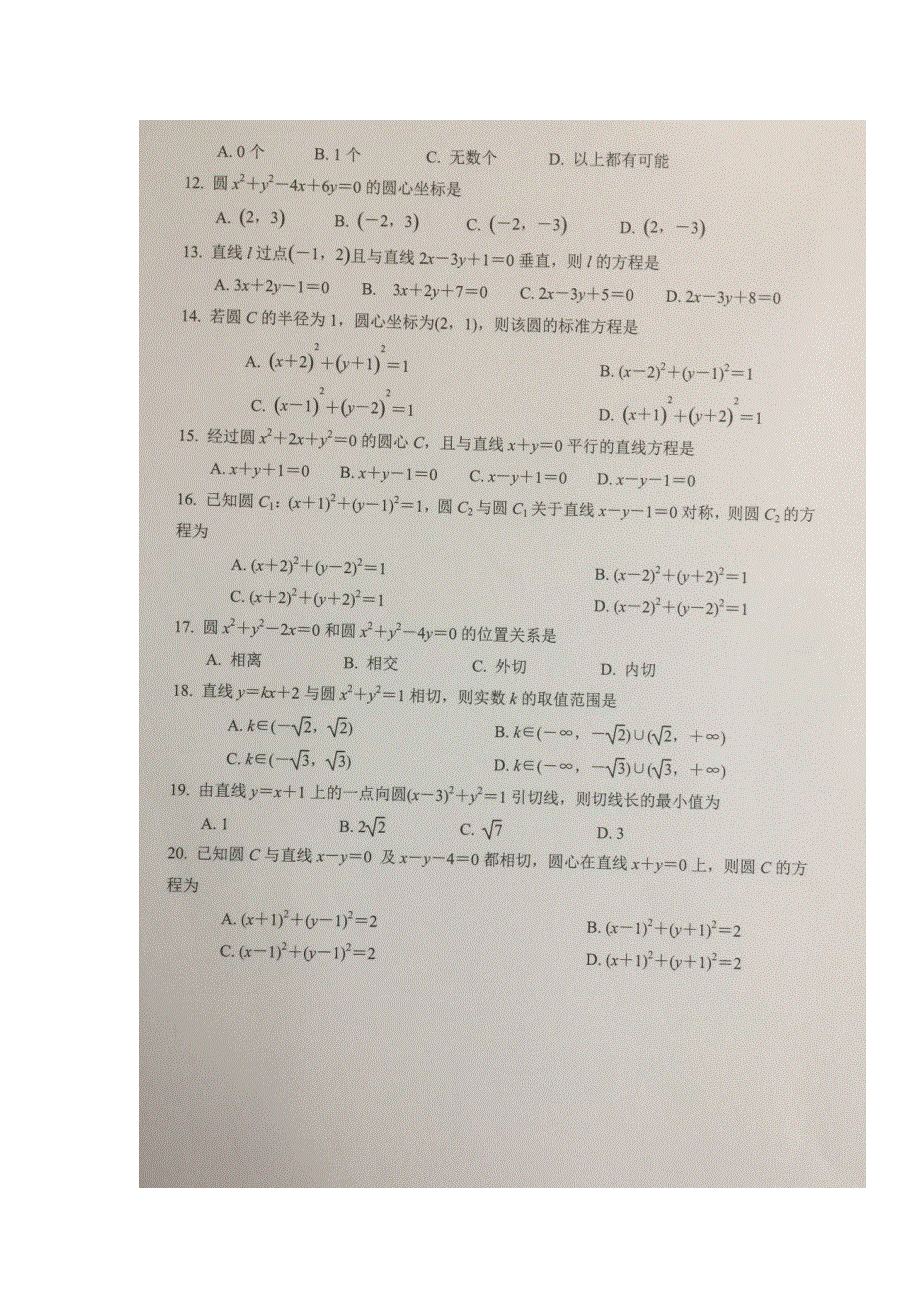 A. 0 个 B. 1 个 C. 无数个 D. 以上都有可能
12. 圆 x²+y²-4x+6y=0 的圆心坐标是
A. (2，3) B. (-2，3) C. (-2，-3) D. (2，-3)
13. 直线 l 过点(-1，2)且与直线 2x-3y+1=0 垂直，则 l 的方程是
A. 3x+2y-1=0 B. 3x+2y+7=0 C. 2x-3y+5=0 D. 2x-3y+8=0
14. 若圆 C 的半径为 1，圆心坐标为(2，1)，则该圆的标准方程是
A. (x+2)²+(y+1)²=1 B. (x-2)²+(y-1)²=1
C. (x-1)²+(y-2)²=1 D. (x+1)²+(y+2)²=1
15. 经过圆 x²+2x+y²=0 的圆心 C，且与直线 x+y=0 平行的直线方程是
A. x+y+1=0 B. x+y-1=0 C. x-y+1=0 D. x-y-1=0
16. 已知圆 C₁：(x+1)²+(y-1)²=1，圆 C₂与圆 C₁关于直线 x-y-1=0 对称，则圆 C₂的方
程为
A. (x+2)²+(y-2)²=1 B. (x-2)²+(y+2)²=1
C. (x+2)²+(y+2)²=1 D. (x-2)²+(y-2)²=1
17. 圆 x²+y²-2x=0 和圆 x²+y²-4y=0 的位置关系是
A. 相离 B. 相交 C. 外切 D. 内切
18. 直线 y=kx+2 与圆 x²+y²=1 相切，则实数 k 的取值范围是
A. k∈(-√2，√2) B. k∈(-∞，-√2)∪(√2，+∞)
C. k∈(-√3，√3) D. k∈(-∞，-√3)∪(√3，+∞)
19. 由直线 y=x+1 上的一点向圆(x-3)²+y²=1 引切线，则切线长的最小值为
A. 1 B. 2√2 C. √7 D. 3
20. 已知圆 C 与直线 x-y=0 及 x-y-4=0 都相切，圆心在直线 x+y=0 上，则圆 C 的方
程为
A. (x+1)²+(y-1)²=2 B. (x-1)²+(y+1)²=2
C. (x-1)²+(y-1)²=2 D. (x+1)²+(y+1)²=2